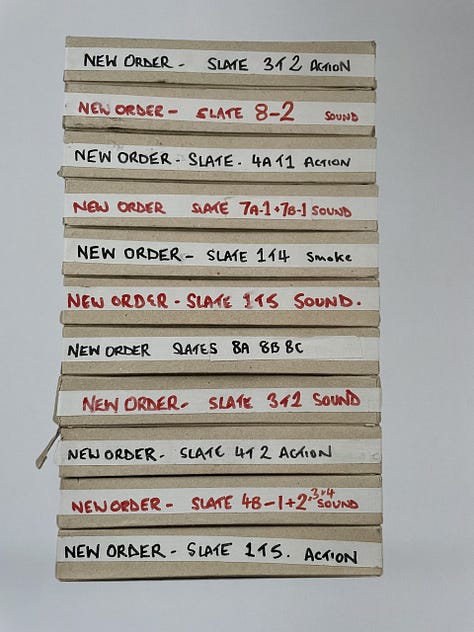 NEW ORDER - SLATE 3T2 ACTION
NEW ORDER - SLATE 8-2 SOUND
NEW ORDER - SLATE. 4AT1 ACTION
NEW ORDER SLATE 7A-1+7B-1 SOUND
NEW ORDER - SLATE 1T4 Smoke
NEW ORDER - SLATE 1T5 SOUND.
NEW ORDER SLATES 8A 8B 8C
NEW ORDER - SLATE 3T2 SOUND
NEW ORDER - SLATE 4T2 ACTION
NEW ORDER - SLATE 4B-1+2,3+4 SOUND
NEW ORDER - SLATE 1T5. ACTION